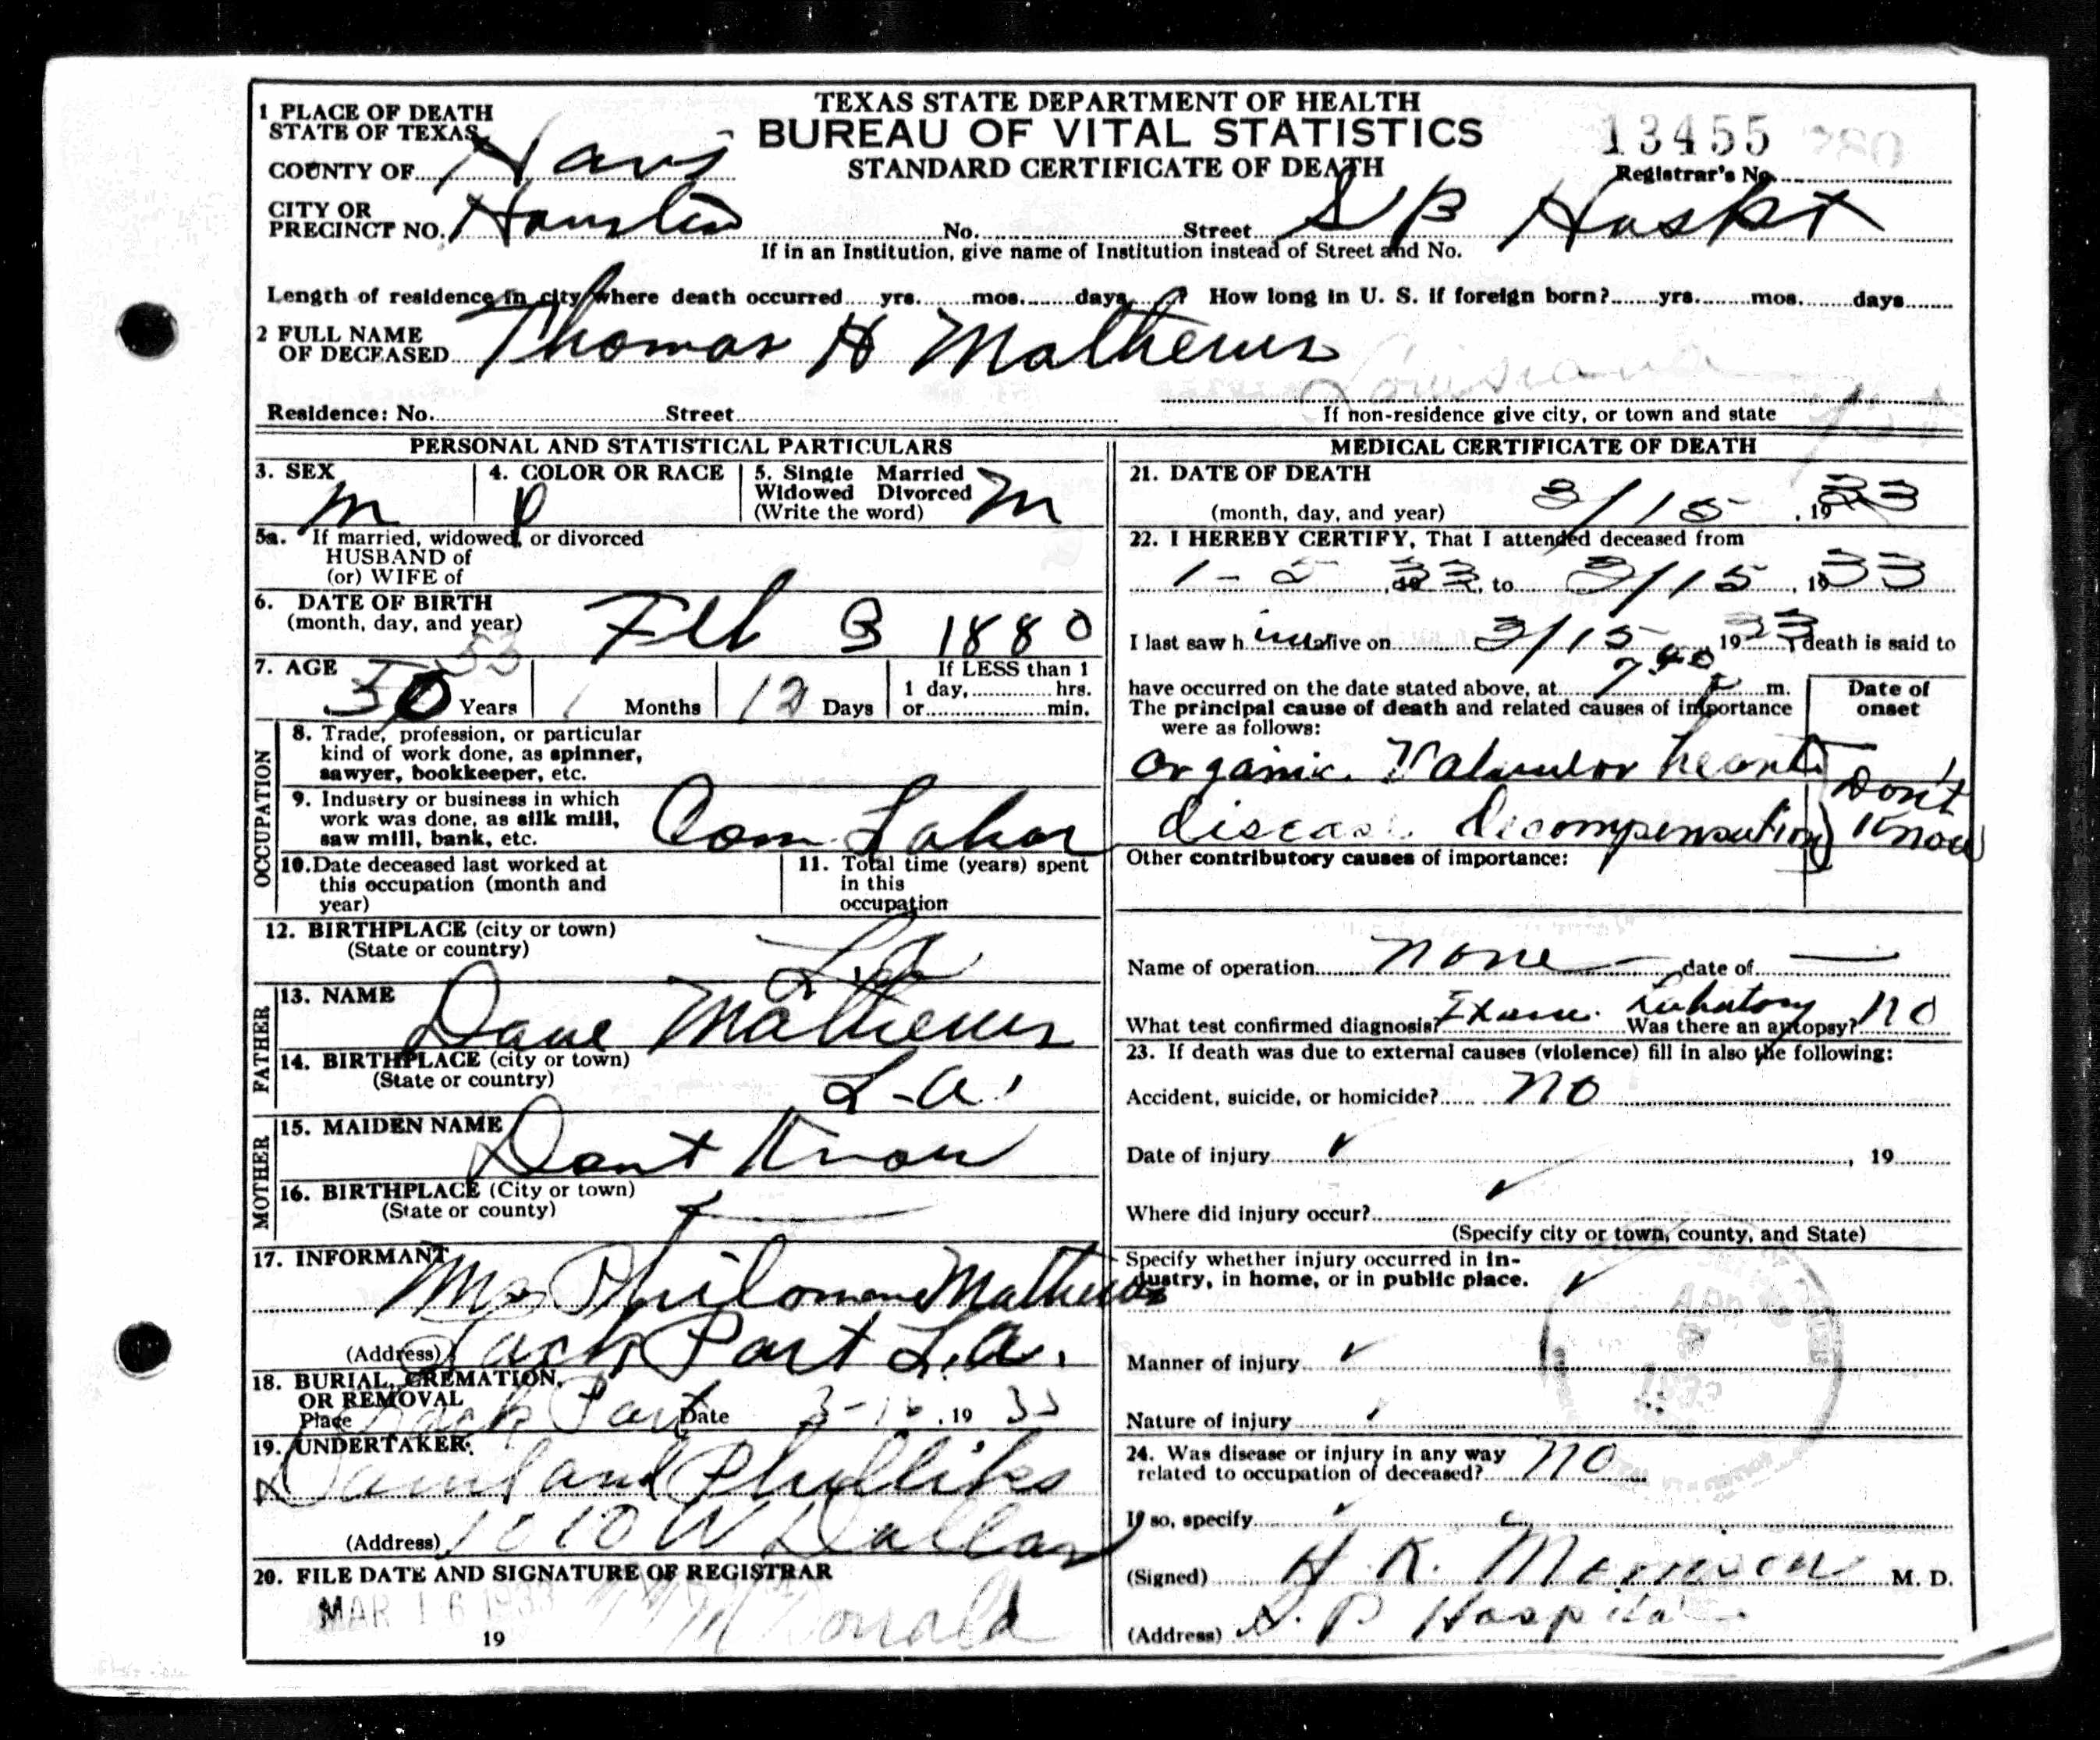 TEXAS STATE DEPARTMENT OF HEALTH
BUREAU OF VITAL STATISTICS
STANDARD CERTIFICATE OF DEATH
13455
Registrar's No.
1 PLACE OF DEATH
STATE OF TEXAS
COUNTY OF Harris
CITY OR
PRECINCT NO. Houston No. Street S P Hospt
If in an Institution, give name of Institution instead of Street and No.
Length of residence in city where death occurred yrs. mos. days ? How long in U. S. if foreign born? yrs. mos. days
2 FULL NAME
OF DECEASED Thomas H Mathews
Louisiana
Residence: No. Street If non-residence give city, or town and state
PERSONAL AND STATISTICAL PARTICULARS
3. SEX
m
4. COLOR OR RACE
5. Single Married
Widowed Divorced
(Write the word) m
5a. If married, widowed, or divorced
HUSBAND of
(or) WIFE of
6. DATE OF BIRTH
(month, day, and year) Feb 3 1880
53
7. AGE
50 Years 1 Months 12 Days
If LESS than 1
1 day, hrs.
or min.
OCCUPATION
8. Trade, profession, or particular
kind of work done, as spinner,
sawyer, bookkeeper, etc.
9. Industry or business in which
work was done, as silk mill,
saw mill, bank, etc. Com Labor
10. Date deceased last worked at
this occupation (month and
year)
11. Total time (years) spent
in this
occupation
12. BIRTHPLACE (city or town)
(State or country) La
FATHER
13. NAME
Dave Mathews
14. BIRTHPLACE (city or town)
(State or country) L-a.
MOTHER
15. MAIDEN NAME
Dont Know
16. BIRTHPLACE (City or town)
(State or county)
17. INFORMANT
Mrs Philomane Mathews
(Address) Port L.a.
18. BURIAL, CREMATION,
OR REMOVAL
Place Date 3-16, 19 33
19. UNDERTAKER
and Phillips
(Address) 1010 W Dallas
20. FILE DATE AND SIGNATURE OF REGISTRAR
MAR 16 1933
McDonald
19
MEDICAL CERTIFICATE OF DEATH
21. DATE OF DEATH
(month, day, and year) 3/15, 1933
22. I HEREBY CERTIFY, That I attended deceased from
1-5 33, to 3/15, 1933
I last saw him alive on 3/15 1933, death is said to
have occurred on the date stated above, at 7 40 P m.
The principal cause of death and related causes of importance
were as follows:
Date of
onset
organic Valvular heart
disease decompensation
Don't
Know
Other contributory causes of importance:
Name of operation none date of —
What test confirmed diagnosis? Exam. Labratory Was there an autopsy? no
23. If death was due to external causes (violence) fill in also the following:
Accident, suicide, or homicide? no
Date of injury ✓, 19
Where did injury occur? ✓
(Specify city or town, county, and State)
Specify whether injury occurred in in-
dustry, in home, or in public place. ✓
Manner of injury ✓
Nature of injury ✓
24. Was disease or injury in any way
related to occupation of deceased? no
If so, specify
(Signed) H K. Morrison M. D.
(Address) S. P Hospital